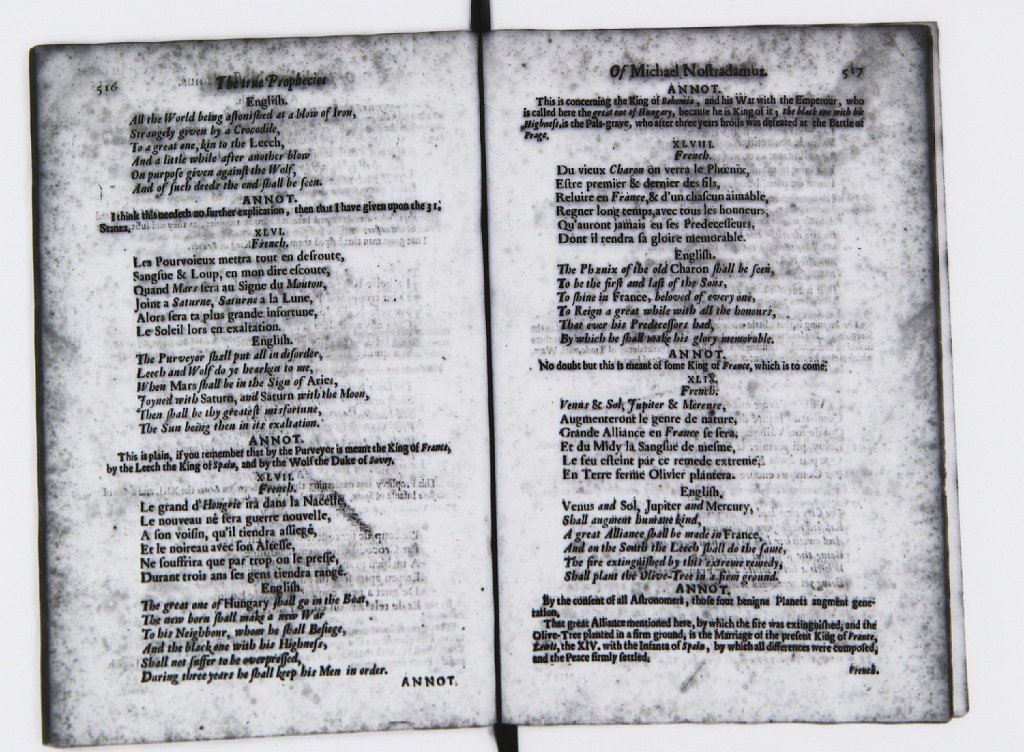 516 The true Prophecies
English.
All the World being astonished at a blow of Iron,
Strangely given by a Crocodile,
To a great one, kin to the Leech,
And a little while after another blow
On purpose given against the Wolf,
And of such deeds the end shall be seen.
ANNOT.
I think this needeth no further explication, then that I have given upon the 31.
Stanza.
XLVI.
French.
Les Pourvoieux mettra tout en desroute,
Sangsue & Loup, en mon dire escoute,
Quand Mars sera au Signe du Mouton,
Joint a Saturne, Saturne a la Lune,
Alors sera ta plus grande infortune,
Le Soleil lors en exaltation.
English.
The Purveyor shall put all in disorder,
Leech and Wolf do ye hearken to me,
When Mars shall be in the Sign of Aries,
Joyned with Saturn, and Saturn with the Moon,
Then shall be thy greatest misfortune,
The Sun being then in its exaltation.
ANNOT.
This is plain, if you remember that by the Purveyor is meant the King of France,
by the Leech the King of Spain, and by the Wolf the Duke of Savoy.
XLVII.
French.
Le grand d'Hongrie ira dans la Nacelle,
Le nouveau né fera guerre nouvelle,
A son voisin, qu'il tiendra assiegé,
Et le noireau avec son Altesse,
Ne souffrira que par trop on le presse,
Durant trois ans ses gens tiendra rangé.
English.
The great one of Hungary shall go in the Boat,
The new born shall make a new War
To his Neighbour, whom he shall Besiege,
And the black one with his Highness,
Shall not suffer to be overpressed,
During three years he shall keep his Men in order.
ANNOT.
Of Michael Nostradamus. 517
ANNOT.
This is concerning the King of Bohemia, and his War with the Emperour, who
is called here the great one of Hungary, because he is King of it; the black one with his
Highness, is the Pals-grave, who after three years broils was defeated at the Battle of
Prage.
XLVIII.
French.
Du vieux Charon on verra le Phœnix,
Estre premier & dernier des fils,
Reluire en France, & d'un chascun aimable,
Regner long temps, avec tous les honneurs,
Qu'auront jamais eu ses Predecesseurs,
Dont il rendra sa gloire memorable.
English.
The Phœnix of the old Charon shall be seen,
To be the first and last of the Sons,
To shine in France, beloved of every one,
To Reign a great while with all the honours,
That ever his Predecessors had,
By which he shall make his glory memorable.
ANNOT.
No doubt but this is meant of some King of France, which is to come.
XLIX.
French.
Venus & Sol, Jupiter & Mercure,
Augmenteront le genre de nature,
Grande Alliance en France se fera,
Et du Midy la Sangsue de mesme,
Le feu esteint par ce remede extreme,
En Terre ferme Olivier plantera.
English.
Venus and Sol, Jupiter and Mercury,
Shall augment humane kind,
A great Alliance shall be made in France,
And on the South the Leech shall do the same,
The fire extinguished by this extreme remedy,
Shall plant the Olive-Tree in a firm ground.
ANNOT.
By the consent of all Astronomers, those four benigne Planets augment gene-
ration.
That great Alliance mentioned here, by which the fire was extinguished, and the
Olive-Tree planted in a firm ground, is the Marriage of the present King of France,
Lewis, the XIV. with the Infanta of Spain, by which all differences were composed,
and the Peace firmly settled.
French.